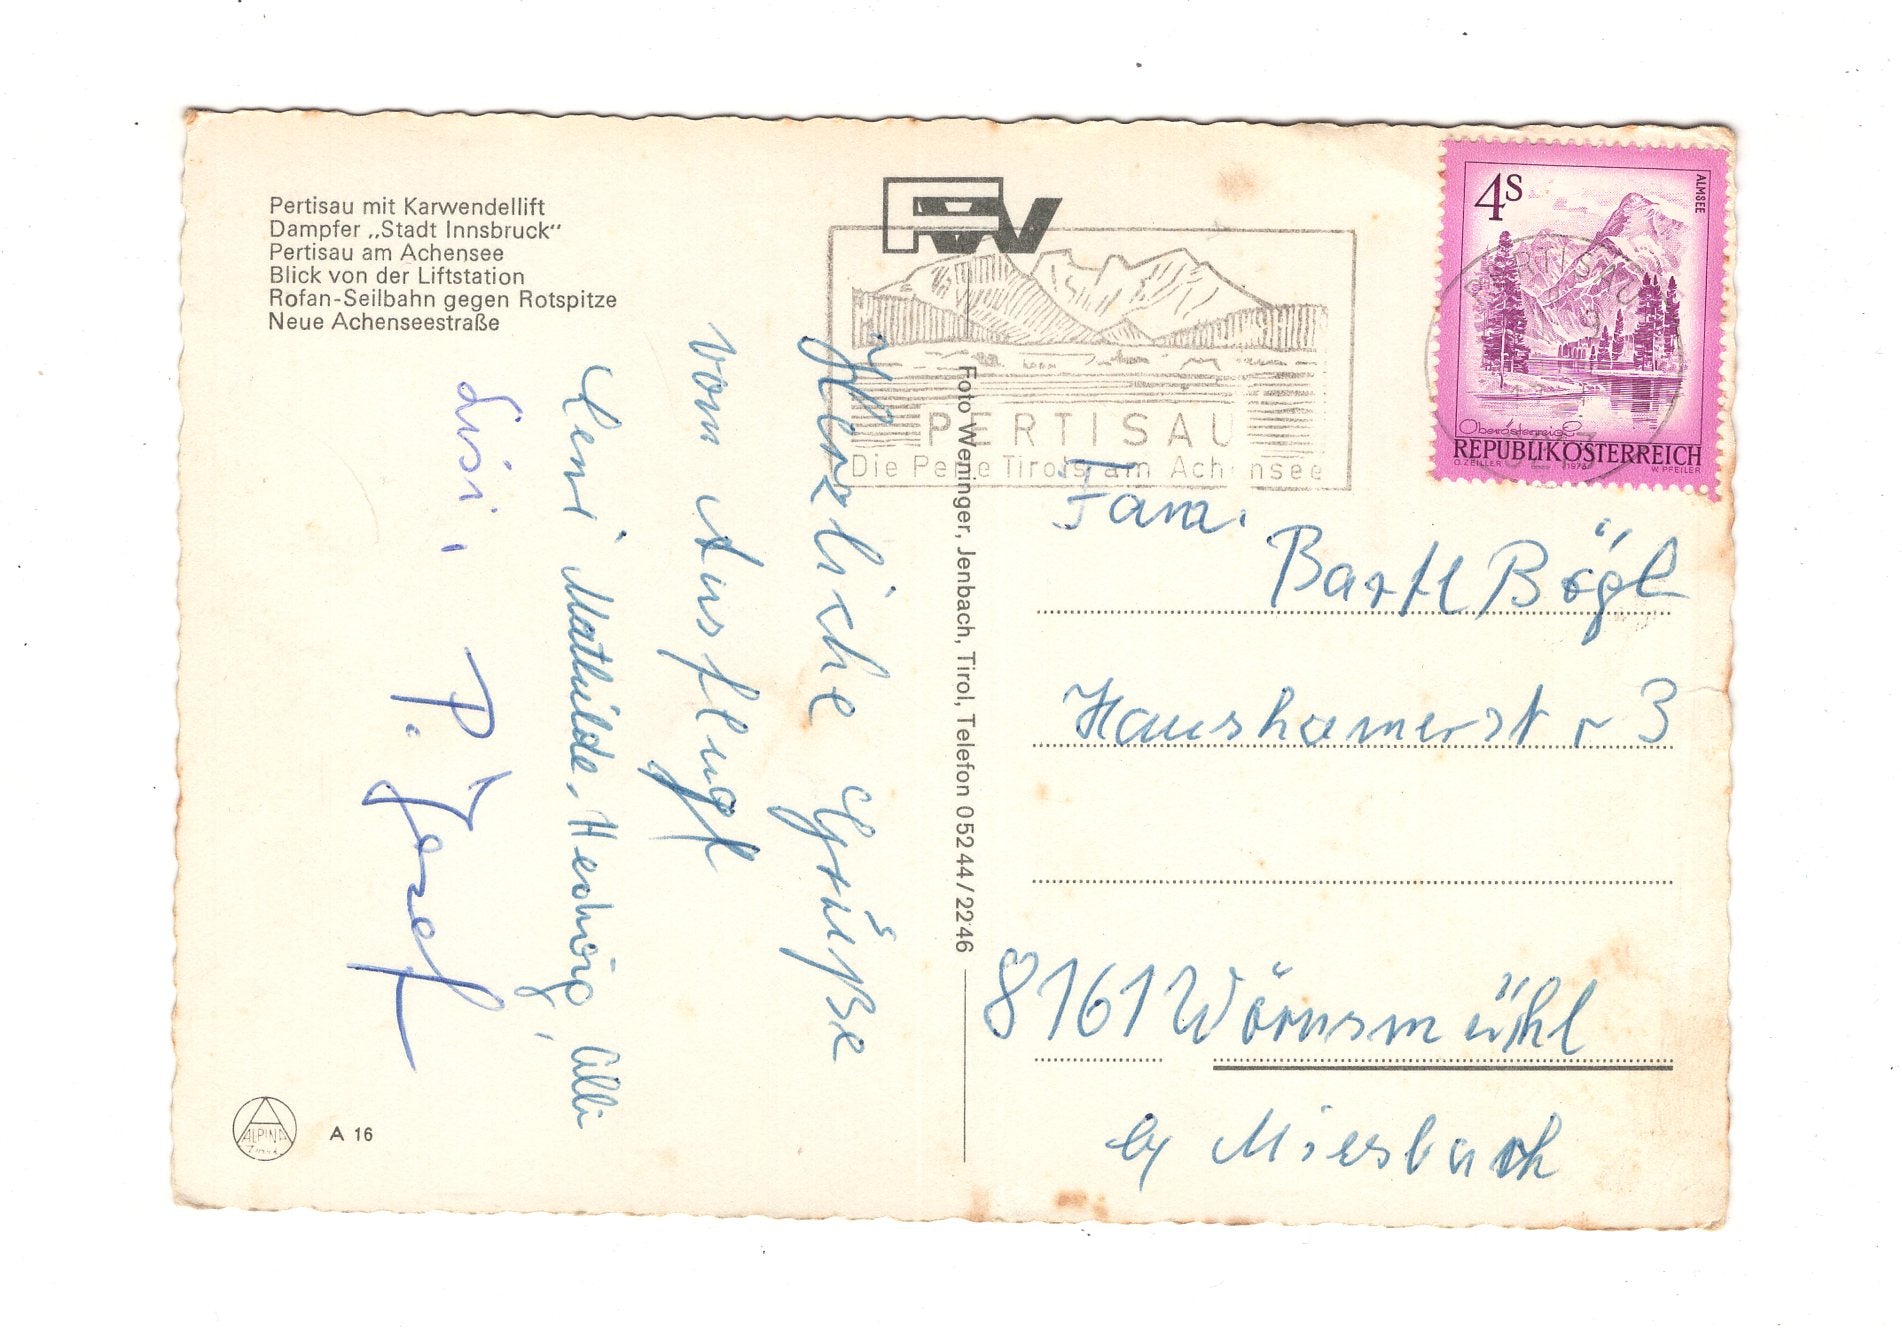 Pertisau mit Karwendellift
Dampfer „Stadt Innsbruck“
Pertisau am Achensee
Blick von der Liftstation
Rofan-Seilbahn gegen Rotspitze
Neue Achenseestraße
Herzliche Grüße
vom Ausflug
Leni Mathilde, Hedwig, Olli
Lisi, P. Josef
ALPINA
A 16
Foto Weninger, Jenbach, Tirol, Telefon 05244/2246
PERTISAU
Die Perle Tirols am Achensee
4S
ALMSEE
PERTISAU
Oberösterreich
REPUBLIK ÖSTERREICH
O. ZEILLER 1973 W. PFEILER
Fam.
Bartl Bögl
Haushamerstr 3
8161 Wörnsmühl
by Miesbach